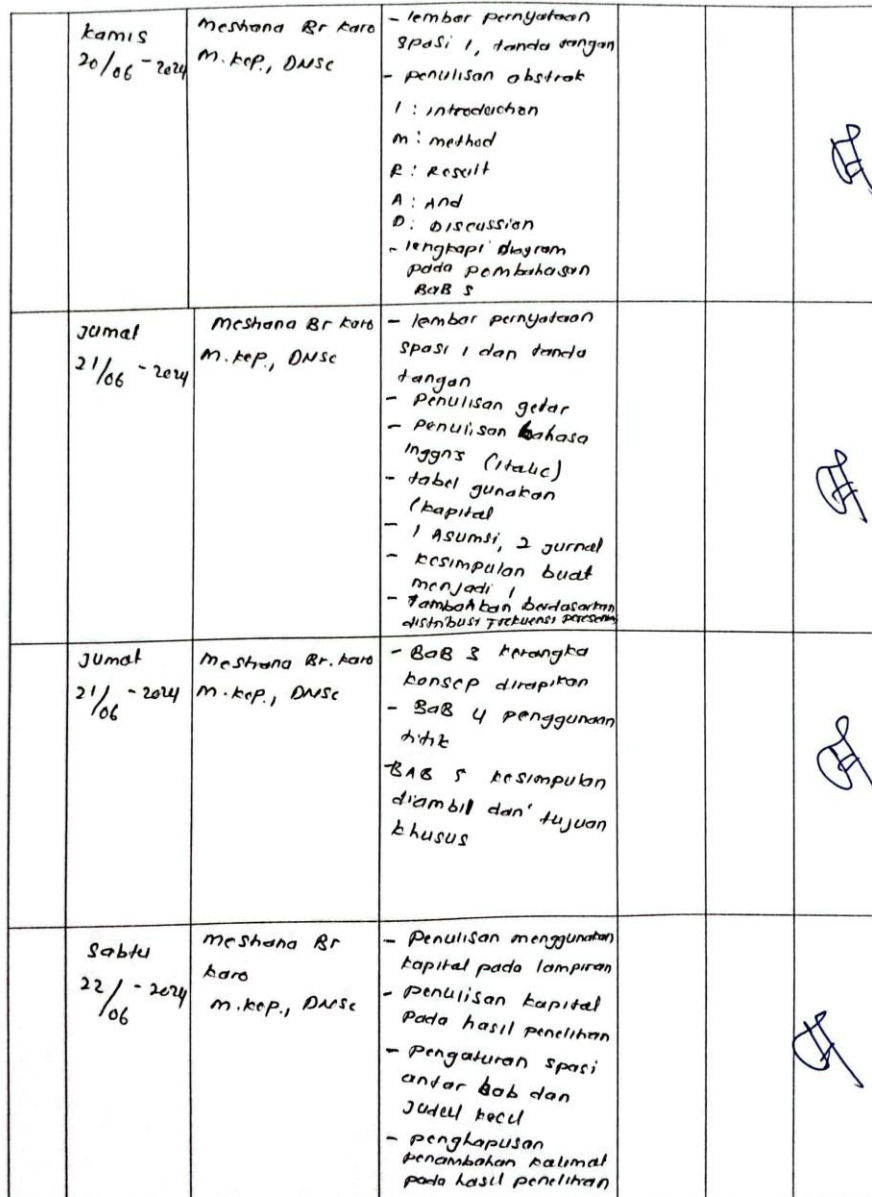 Kamis
20/06 - 2024
Meshana Br Karo
M.Kep., DNSc
- lembar pernyataan
spasi 1, tanda tangan
- penulisan abstrak
I : introduction
M : method
R : Result
A : And
D : Discussion
- lengkapi diagram
pada pembahasan
BAB 5
Jumat
21/06 - 2024
Meshana Br Karo
M.Kep., DNSc
- lembar pernyataan
spasi 1 dan tanda
tangan
- Penulisan gelar
- Penulisan bahasa
Inggris (italic)
- tabel gunakan
(kapital
- 1 Asumsi, 2 jurnal
- kesimpulan buat
menjadi 1
- Tambahkan berdasarkan
distribusi Frekuensi
Jumat
21/06 - 2024
Meshana Br. Karo
M.Kep., DNSc
- BAB 3 kerangka
konsep dirapikan
- BAB 4 penggunaan
titik
BAB 5 kesimpulan
diambil dari tujuan
khusus
Sabtu
22/06 - 2024
Meshana Br
Karo
M.Kep., DNSc
- Penulisan menggunakan
kapital pada lampiran
- Penulisan kapital
pada hasil penelitian
- Pengaturan spasi
antar bab dan
judul kecil
- penghapusan
penambahan kalimat
pada hasil penelitian